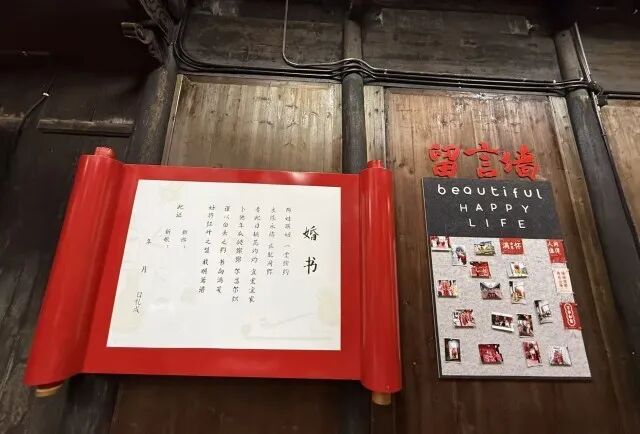 婚书
两姓联姻 一堂缔约
良缘永结 匹配同称
看此日桃花灼灼 宜室宜家
卜他年瓜瓞绵绵 尔昌尔炽
谨以白头之约 书向鸿笺
好将红叶之盟 载明鸳谱
此证
新郎：
新娘：
年 月 日礼成
留言墙
beautiful
HAPPY
LIFE
人间值得